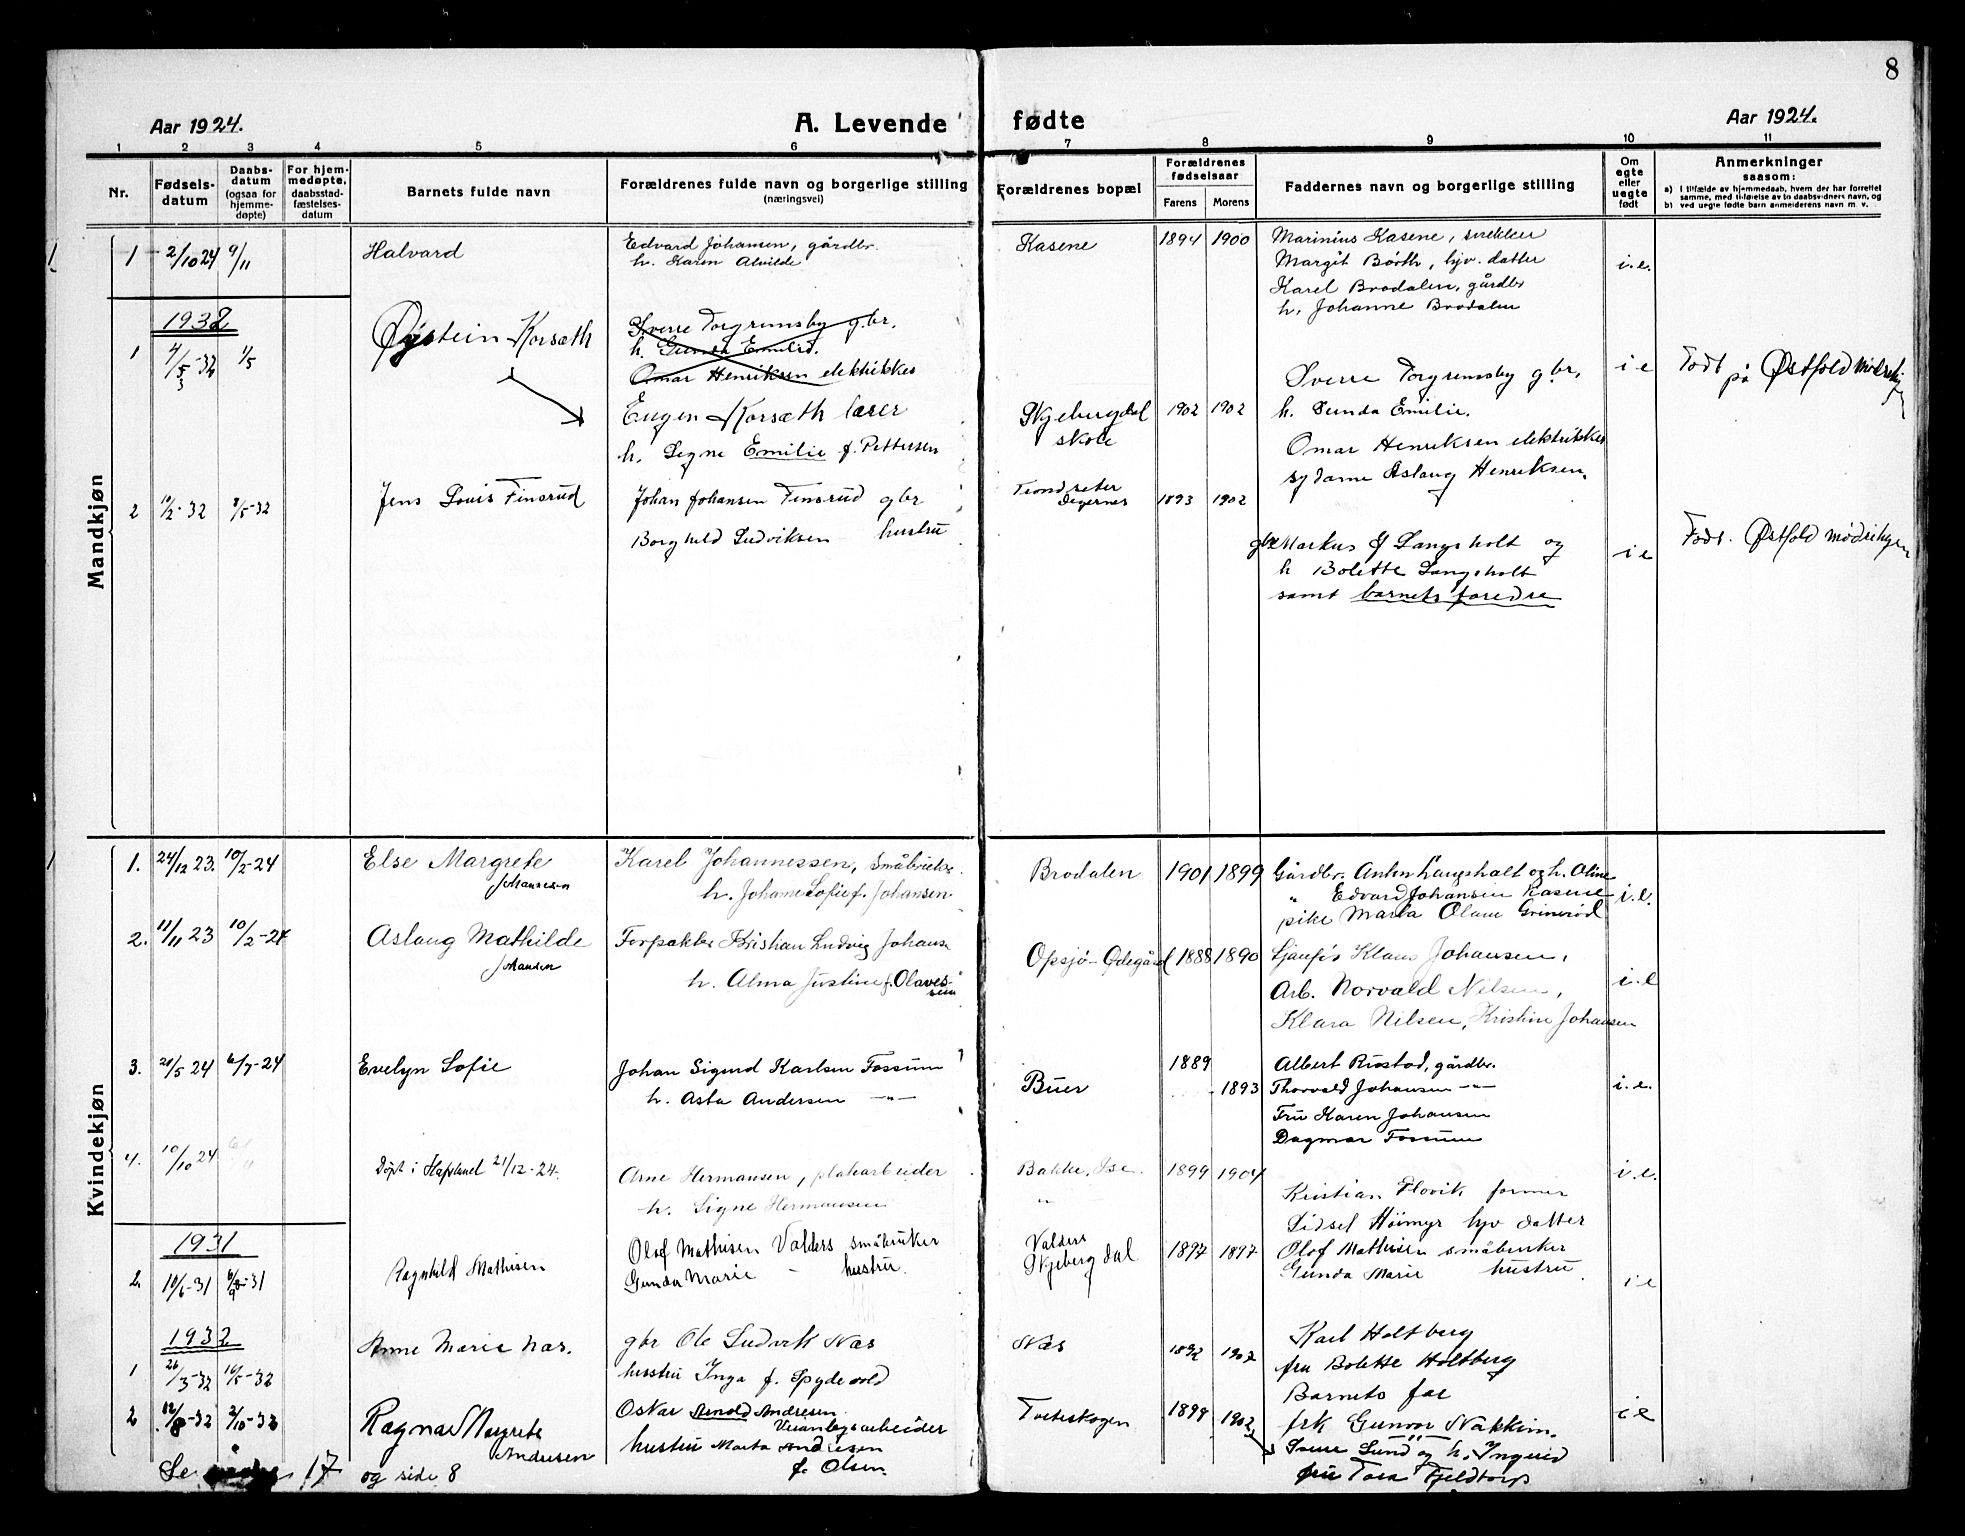 8
Aar 1924.
A. Levende fødte
Aar 1924.
1 2 3 4 5 6 7 8 9 10 11
Nr.
Fødsels-
datum
Daabs-
datum
(ogsaa for
hjemme-
døpte)
For hjem-
medøpte,
daabsstad-
fæstelses-
datum
Barnets fulde navn
Forældrenes fulde navn og borgerlige stilling
(næringsvei)
Forældrenes bopæl
Forældrenes
fødselsaar
Farens Morens
Faddernes navn og borgerlige stilling
Om
egte
eller
uegte
født
Anmerkninger
saasom:
a) I tilfælde av hjemmedaab, hvem der har forrettet
samme, med tilføielse av to daabsvidners navn, og
b) ved uegte fødte barn anmelderens navn m. v.
Mandkjøn
1 2/10 24 9/11 Halvard
Edvard Johansen, gårdbr.
h. Karen Alvilde
Kasene 1894 1900
Marinius Kasene, snekker
Margit Börth, hjv. datter
Karel Brodalen, gårdbr
h. Johanne Brodalen
i.e.
1932
1 4/3-32 1/5 Øystein Korsæth
Sverre Torgrimsby gbr.
h. Gunda Emilie.
Omar Henriksen elektrikker
Eugen Korsæth lærer
h. Signe Emilie f. Pettersen
Skjebergdal
skole
1902 1902
Sverre Torgrimsby gbr,
h. Gunda Emilie.
Omar Henriksen elektrikker
sydame Aslaug Henriksen.
i e
Født på Østfold
2 10/2-32 8/5-32 Jens Louis Finsrud
Johan Johansen Finsrud gbr
Borghild Ludviksen hustru
Degernes
1893 1902
gbr Markus J Langsholt og
h Bolette Langsholt
samt barnets foredre
i e
Født. Østfold
Kvindekjøn
1. 24/12 23. 10/2-24 Else Margrete
Johannesen
Karel Johannessen, Småbruker
h. Johane Sofie f. Johansen
Brodalen 1901 1899
Gårdbr. Anton Langsholt og h. Oline
" Edvard Johansen Kasene
pike Marta Olava Grimsröd
i.e.
2. 11/11 23 10/2-24 Aslaug Mathilde
Johansen
Torpakker Kristian Ludvig Johansen
h. Alma Justine f. Olaves-
sen
Opsjö-Ödegård 1888 1890
Klaus Johansen,
Arb. Norvald Nilsen,
Klara Nilsen, Kristine Johansen
i.e
3. 24 6/7-24 Evelyn Sofie
Johan Sigurd Karlsen Fossum
h. Asta Andersen -"-
Buer 1889 1893
Albert Rustad, gårdbr.
Thorvald Johansen -"-
Fru Karen Johansen
Dagmar Fossum
i.e.
4. 10/10 24
Döpt i Hafslund 21/12-24.
Arne Hermansen, platearbeider
h. Signe Hermansen
Bakke, Ise. 1899 1904
"
Kristian Hovik former
Sidsel Höimyr hjv datter
i.e.
1931
2. 10/6-31 Ragnhild Mathisen
Olof Mathisen Valders småbruker
Gunda Marie - hustru.
Valders
Skjebergdal
1897 1897
Olof Mathisen småbruker
Gunda Marie hustru
i e
1932
1 26/3-32 16/5-32 Anne Marie Næs.
gbr Ole Ludvik Næs
hustru Inga f. Spydevold
Næs 1892 1907
Karl Holtberg
fru Bolette Holtberg
Barnets far
2 12/8-32 2/10-32 Ragna Margrete
Andresen
Oskar Arnold Andresen
Veianlegsarbeider
hustru Marta Andresen
f. Olsen.
Tveteskogen 1899 1902
frk Gunvor Nakkim.
Sverre Lund og h. Ingrid
fru Tora Fjeldtorp
i e
Se 17 og side 8